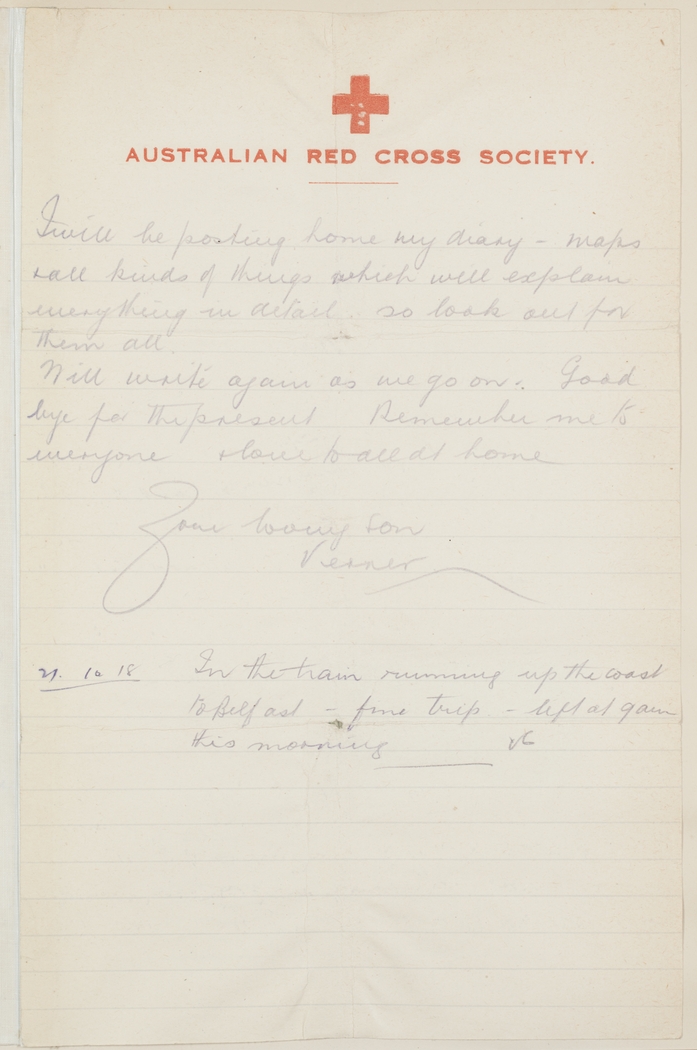 AUSTRALIAN RED CROSS SOCIETY.
I will be posting home my diary - maps
& all kinds of things which will explain
everything in detail. so look out for
them all.
Will write again as we go on. Good
bye for the present Remember me to
everyone & love to all at home
Your loving son
Verner
21. 10 18 In the train running up the coast
to Belfast - fine trip - left at 9 am
this morning